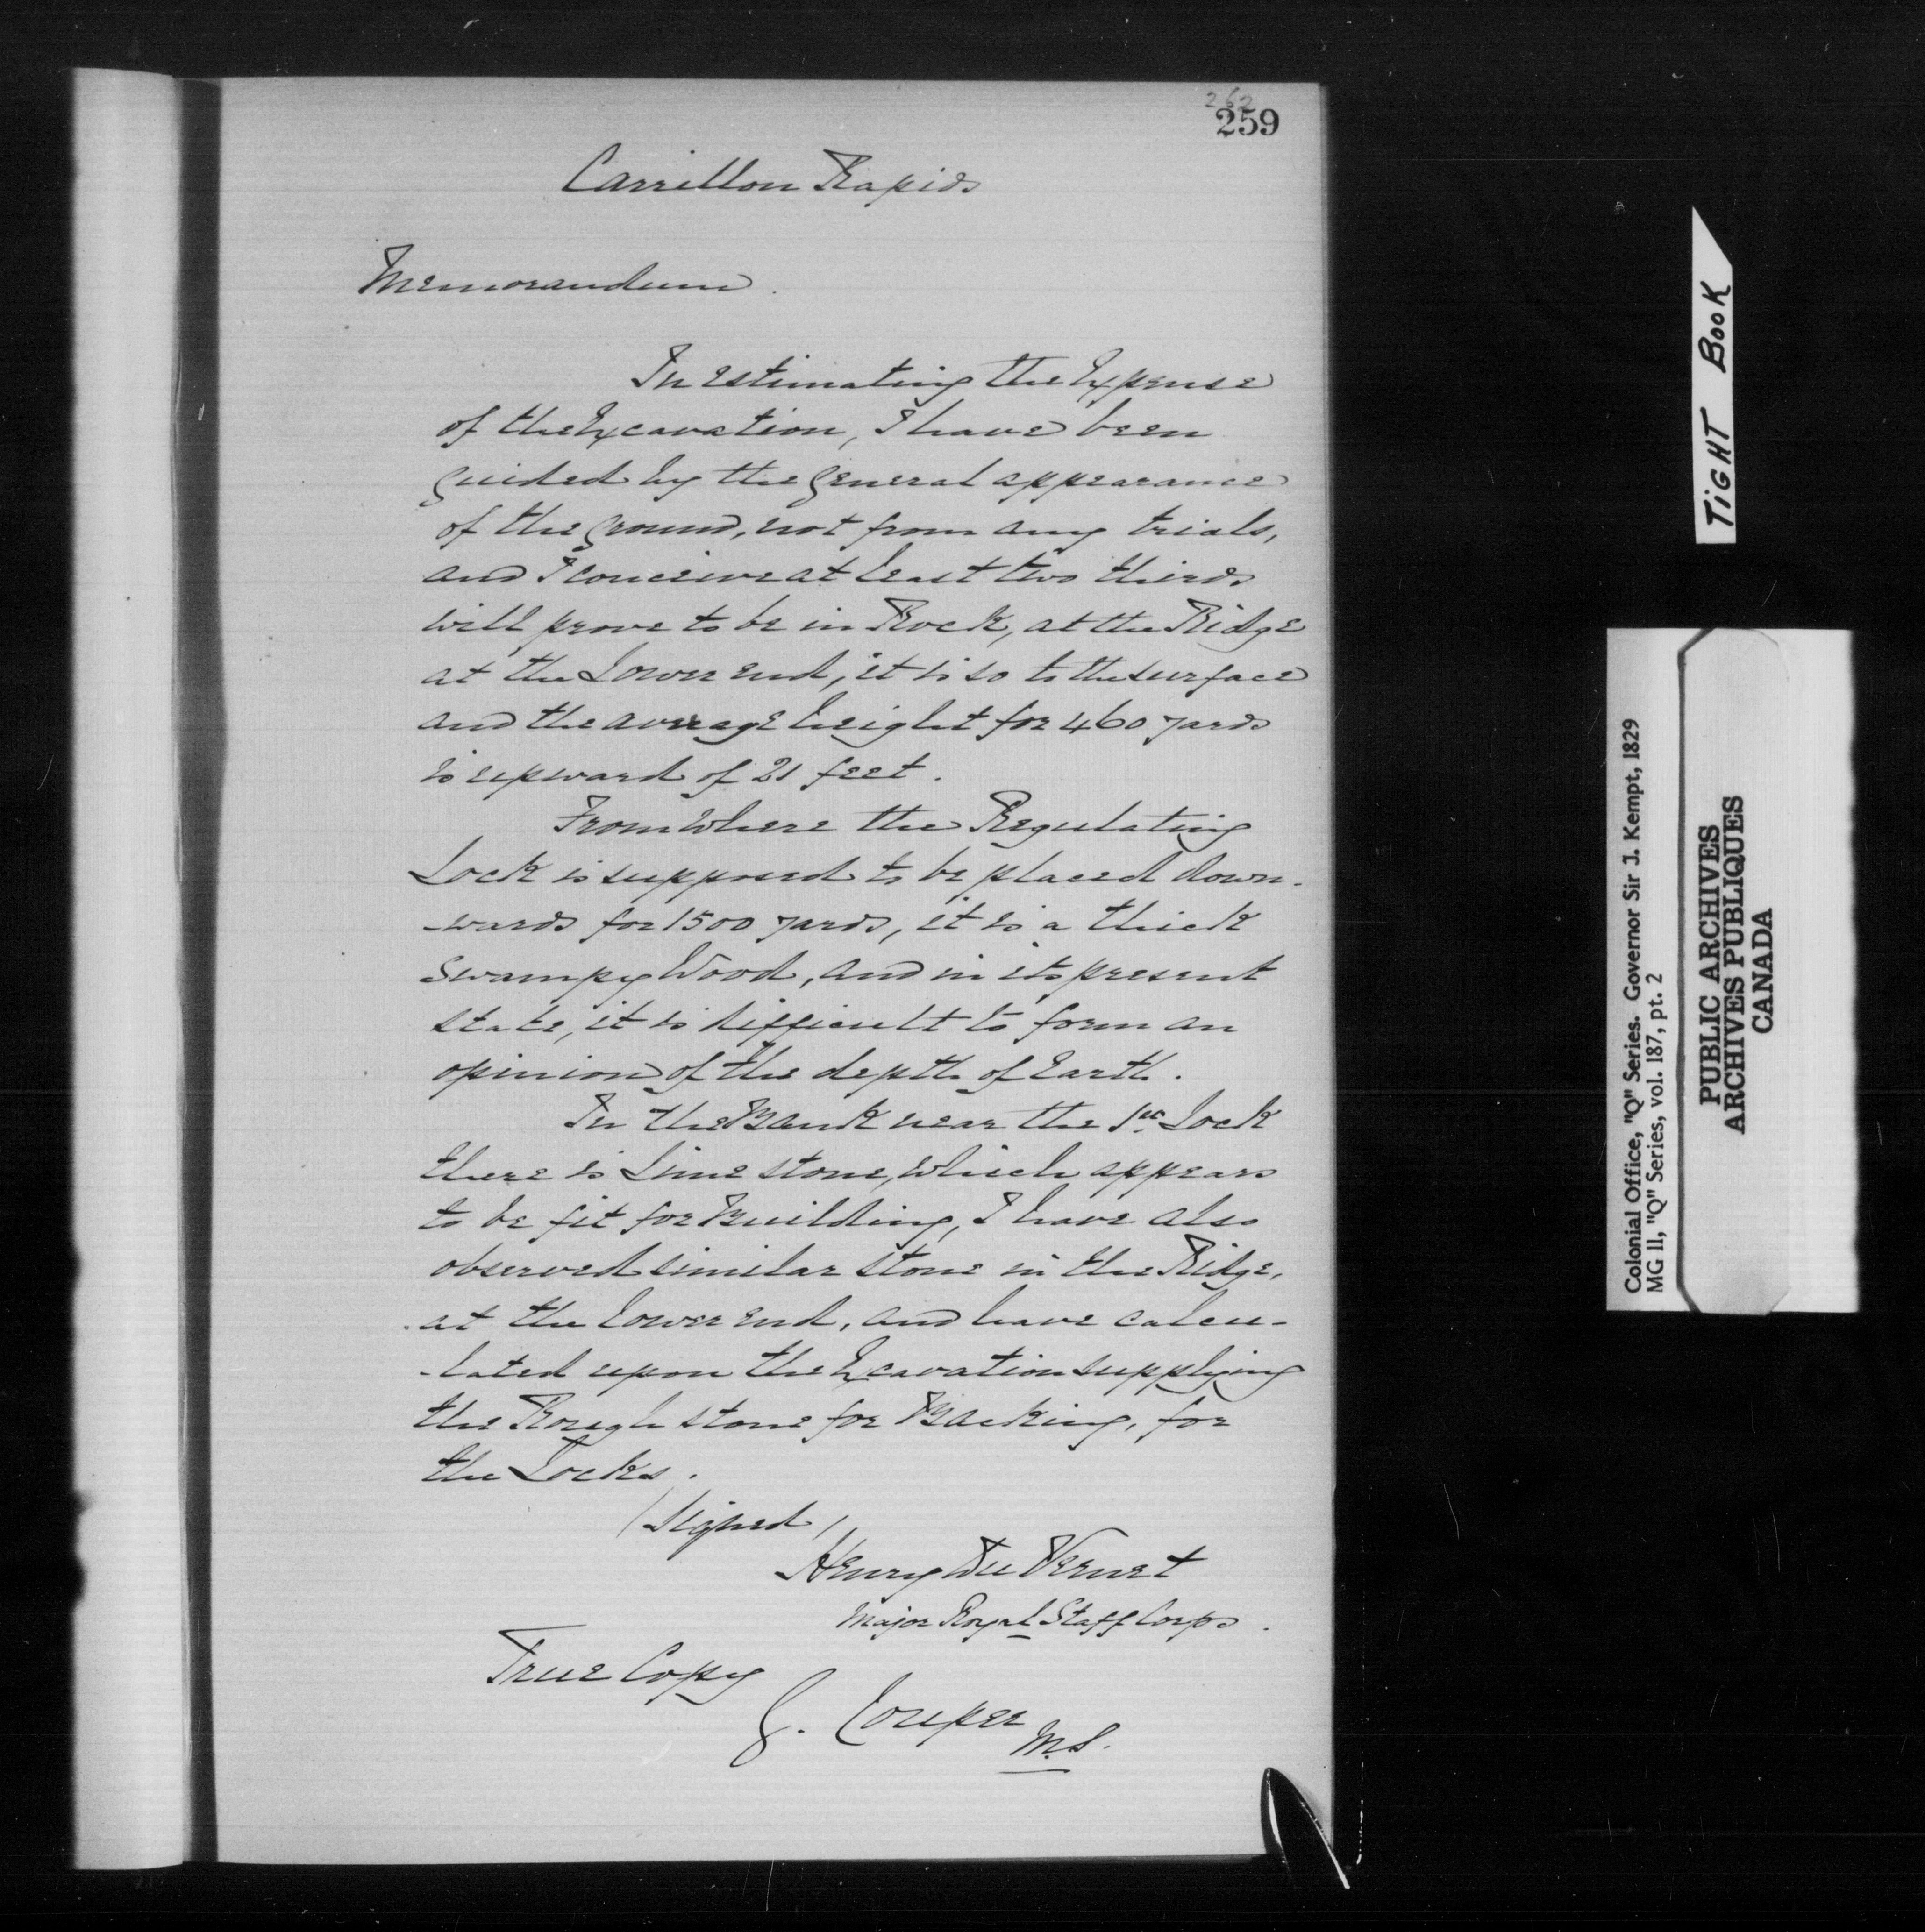 262
259
Carrillon Rapids
Memorandum.
In estimating the Expense
of the Excavation, I have been
guided by the general appearance
of the ground, not from any trials,
and I conceive at least two thirds
will prove to be in Rock, at the Ridge
at the Lower end, it is so to the surface
and the average height for 460 yards
is upward of 21 feet.
From where the Regulating
Lock is supposed to be placed down-
-wards for 1500 yards, it is a thick
Swampy Wood, and in its present
state, it is difficult to form an
opinion of the depth of Earth.
In the Bank near the 1st. Lock
there is Lime stone, which appears
to be fit for Building, I have also
observed similar stone in the Ridge,
at the lower end, and have calcu-
-lated upon the Excavation supplying
the Rough stone for Backing, for
the Locks.
(Signed)
Henry Du Vernet
Major Royal Staff Corps.
True Copy
G. Couper
M.S.
TIGHT BOOK
Colonial Office, "Q" Series. Governor Sir J. Kempt, 1829
MG 11, "Q" Series, vol. 187, pt. 2
PUBLIC ARCHIVES
ARCHIVES PUBLIQUES
CANADA